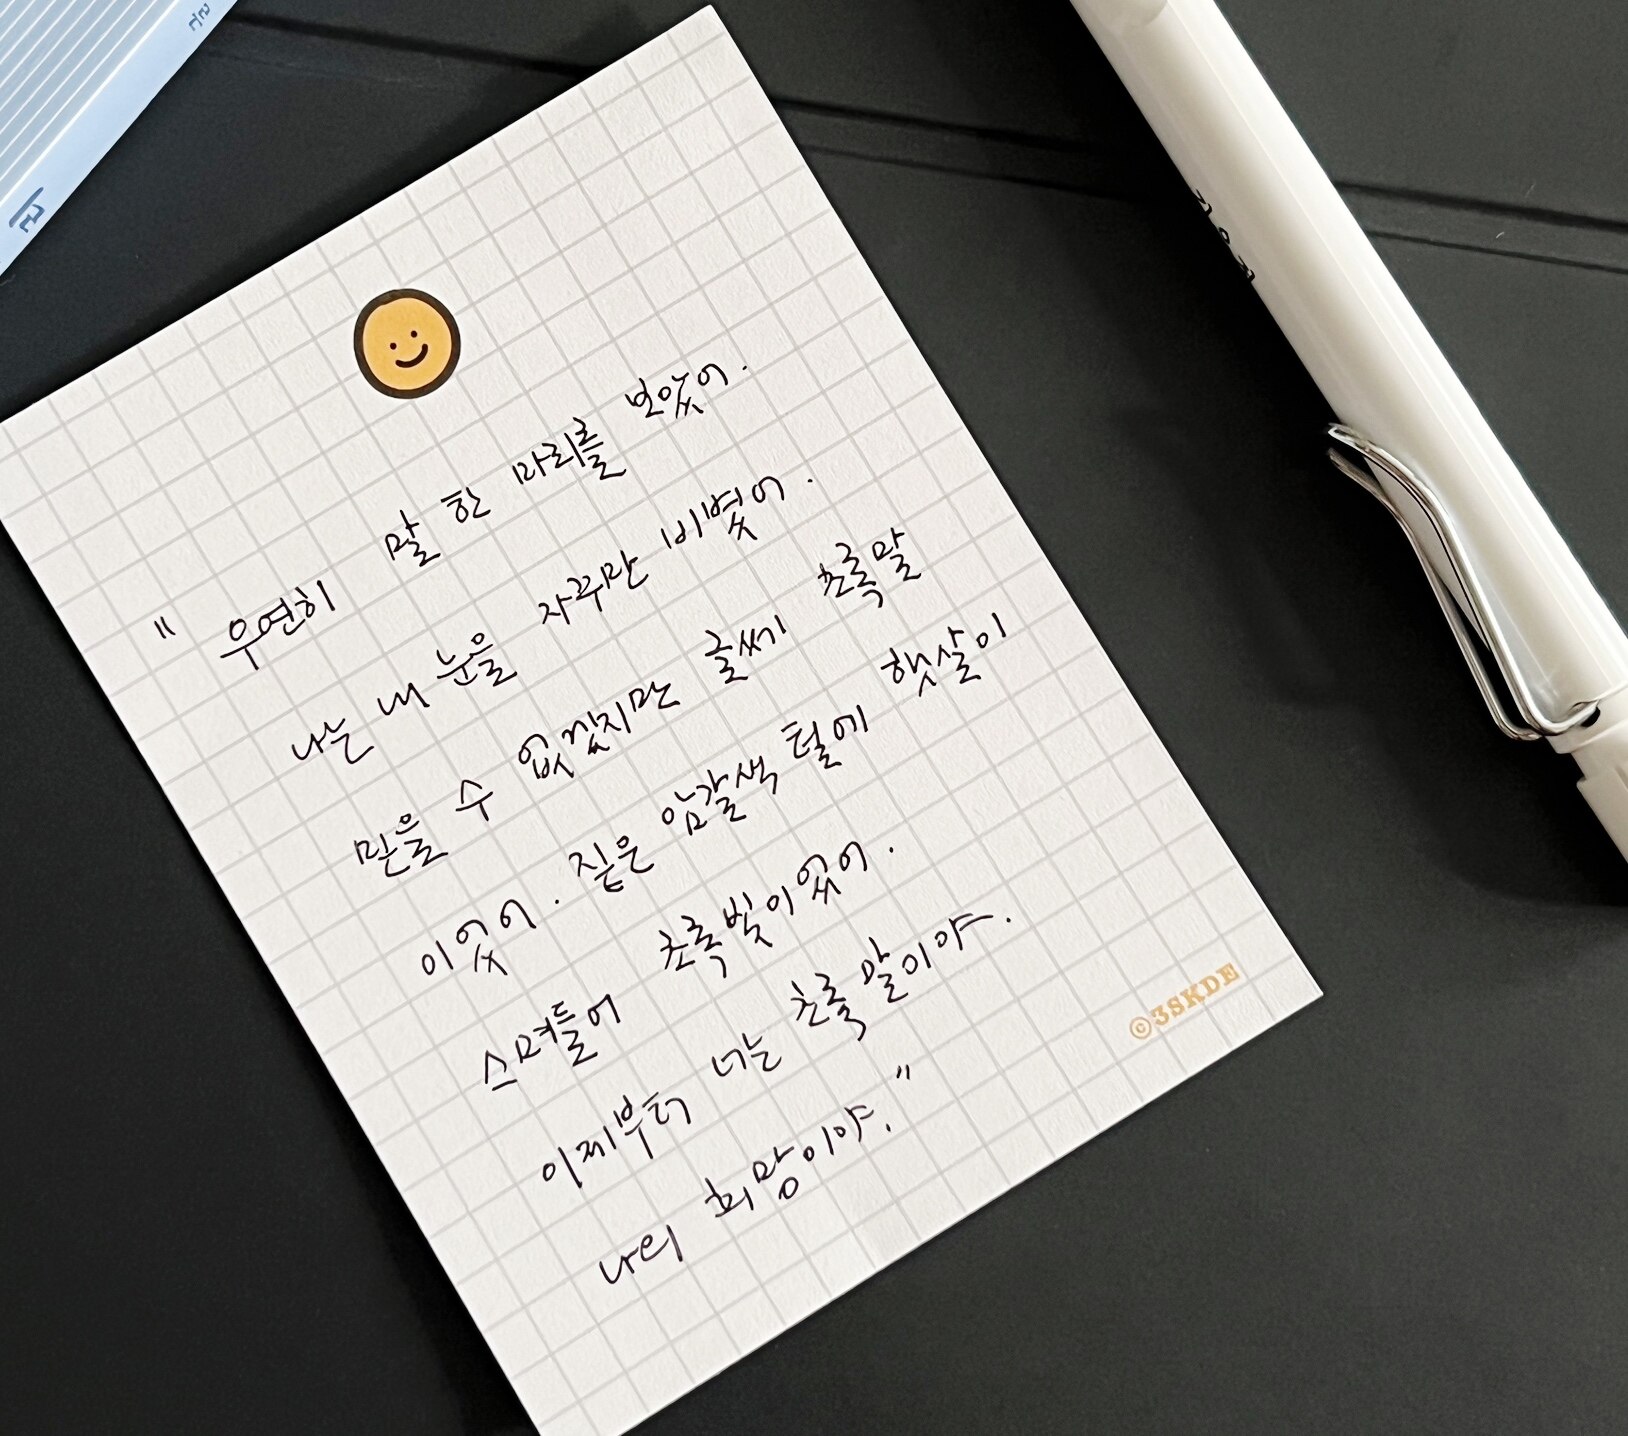 " 우연히 말 한 마리를 보았어.
나는 내 눈을 자꾸만 비볐어.
믿을 수 없겠지만 글쎄 초록말
이었어. 짙은 암갈색 털에 햇살이
스며들어 초록빛이었어.
이제부터 너는 초록 말이야.
나의 희망이야. "
©3SKDE